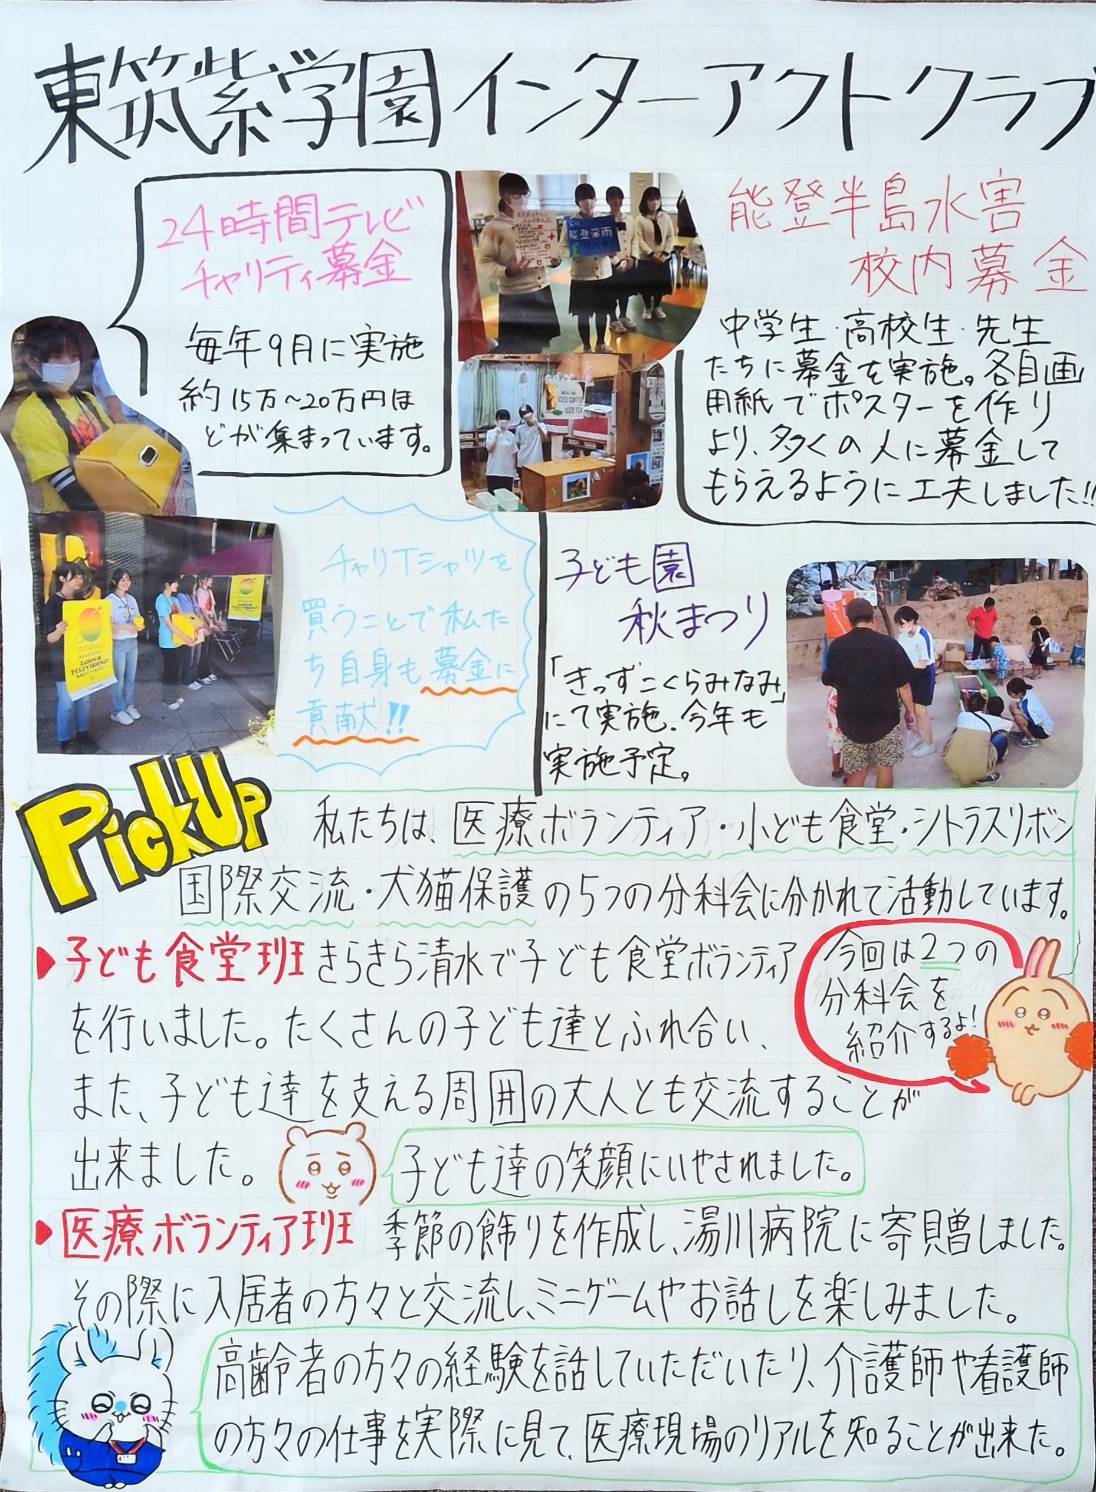 東筑紫学園インターアクトクラブ
24時間テレビ
チャリティ募金
毎年9月に実施
約15万～20万円ほ
どが集まっています。
能登豪雨
能登半島水害
校内募金
中学生・高校生・先生
たちに募金を実施。各自画
用紙でポスターを作り
より、多くの人に募金して
もらえるように工夫しました!!
チャリTシャツを
買うことで私た
ち自身も募金に
貢献!!
子ども園
秋まつり
「きっずこくらみなみ」
にて実施.今年も
実施予定。
PickUp
私たちは、医療ボランティア・小ども食堂・シトラスリボン
国際交流・犬猫保護の5つの分科会に分かれて活動しています。
子ども食堂班 きらきら清水で子ども食堂ボランティア
を行いました。たくさんの子ども達とふれ合い、
また、子ども達を支える周囲の大人とも交流することが
出来ました。
今回は2つの
分科会を
紹介するよ!
子ども達の笑顔にいやされました。
医療ボランティア班 季節の飾りを作成し、湯川病院に寄贈しました。
その際に入居者の方々と交流し、ミニゲームやお話しを楽しみました。
高齢者の方々の経験を話していただいたり、介護師や看護師
の方々の仕事を実際に見て、医療現場のリアルを知ることが出来た。